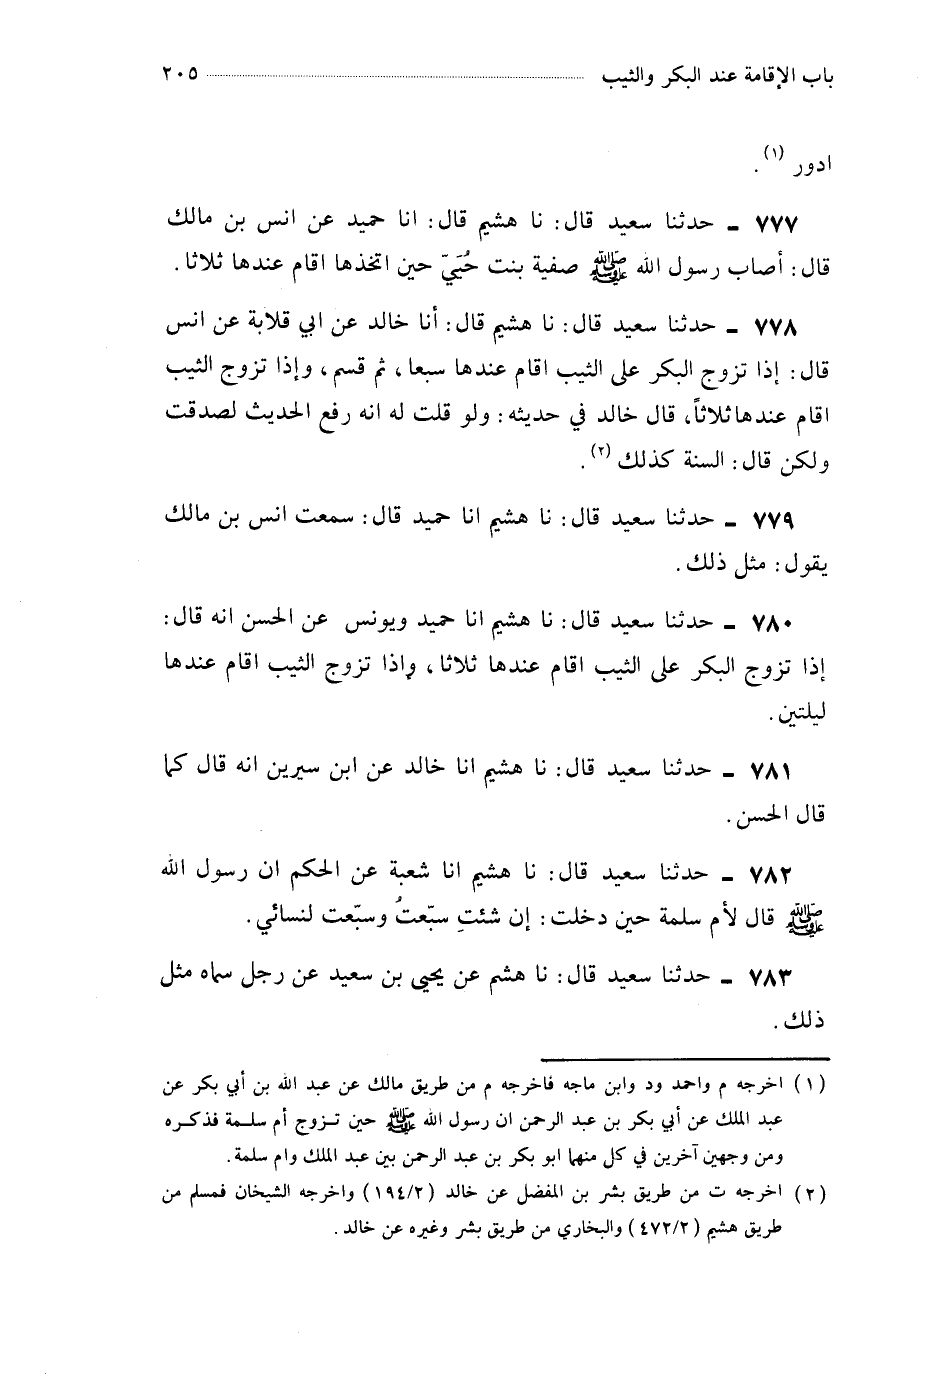 باب الإقامة عند البكر والثيب ................ ٢٠٥
ادور (١) .
٧٧٧ ـ حدثنا سعيد قال: نا هشيم قال: انا حميد عن انس بن مالك
قال: أصاب رسول الله ﷺ صفية بنت حُيَيّ حين اتخذها اقام عندها ثلاثا.
٧٧٨ ـ حدثنا سعيد قال: نا هشيم قال: أنا خالد عن ابي قلابة عن انس
قال: إذا تزوج البكر على الثيب اقام عندها سبعا، ثم قسم، وإذا تزوج الثيب
اقام عندها ثلاثاً، قال خالد في حديثه: ولو قلت له انه رفع الحديث لصدقت
ولكن قال: السنة كذلك (٢) .
٧٧٩ ـ حدثنا سعيد قال: نا هشيم انا حميد قال: سمعت انس بن مالك
يقول: مثل ذلك.
٧٨٠ ـ حدثنا سعيد قال: نا هشيم انا حميد ويونس عن الحسن انه قال:
إذا تزوج البكر على الثيب اقام عندها ثلاثا، وإذا تزوج الثيب اقام عندها
ليلتين.
٧٨١ ـ حدثنا سعيد قال: نا هشيم انا خالد عن ابن سيرين انه قال كما
قال الحسن.
٧٨٢ ـ حدثنا سعيد قال: نا هشيم انا شعبة عن الحكم ان رسول الله
ﷺ قال لأم سلمة حين دخلت: إن شئتِ سبّعتُ وسبّعت لنسائي.
٧٨٣ ـ حدثنا سعيد قال: نا هشم عن يحيى بن سعيد عن رجل سماه مثل
ذلك.
(١) اخرجه م واحمد ود وابن ماجه فاخرجه م من طريق مالك عن عبد الله بن أبي بكر عن
عبد الملك عن أبي بكر بن عبد الرحمن ان رسول الله ﷺ حين تزوج أم سلمة فذكره
ومن وجهين آخرين في كل منهما ابو بكر بن عبد الرحمن بين عبد الملك وام سلمة.
(٢) اخرجه ت من طريق بشر بن المفضل عن خالد (١٩٤/٢) واخرجه الشيخان فمسلم من
طريق هشيم (٤٧٢/٢) والبخاري من طريق بشر وغيره عن خالد.